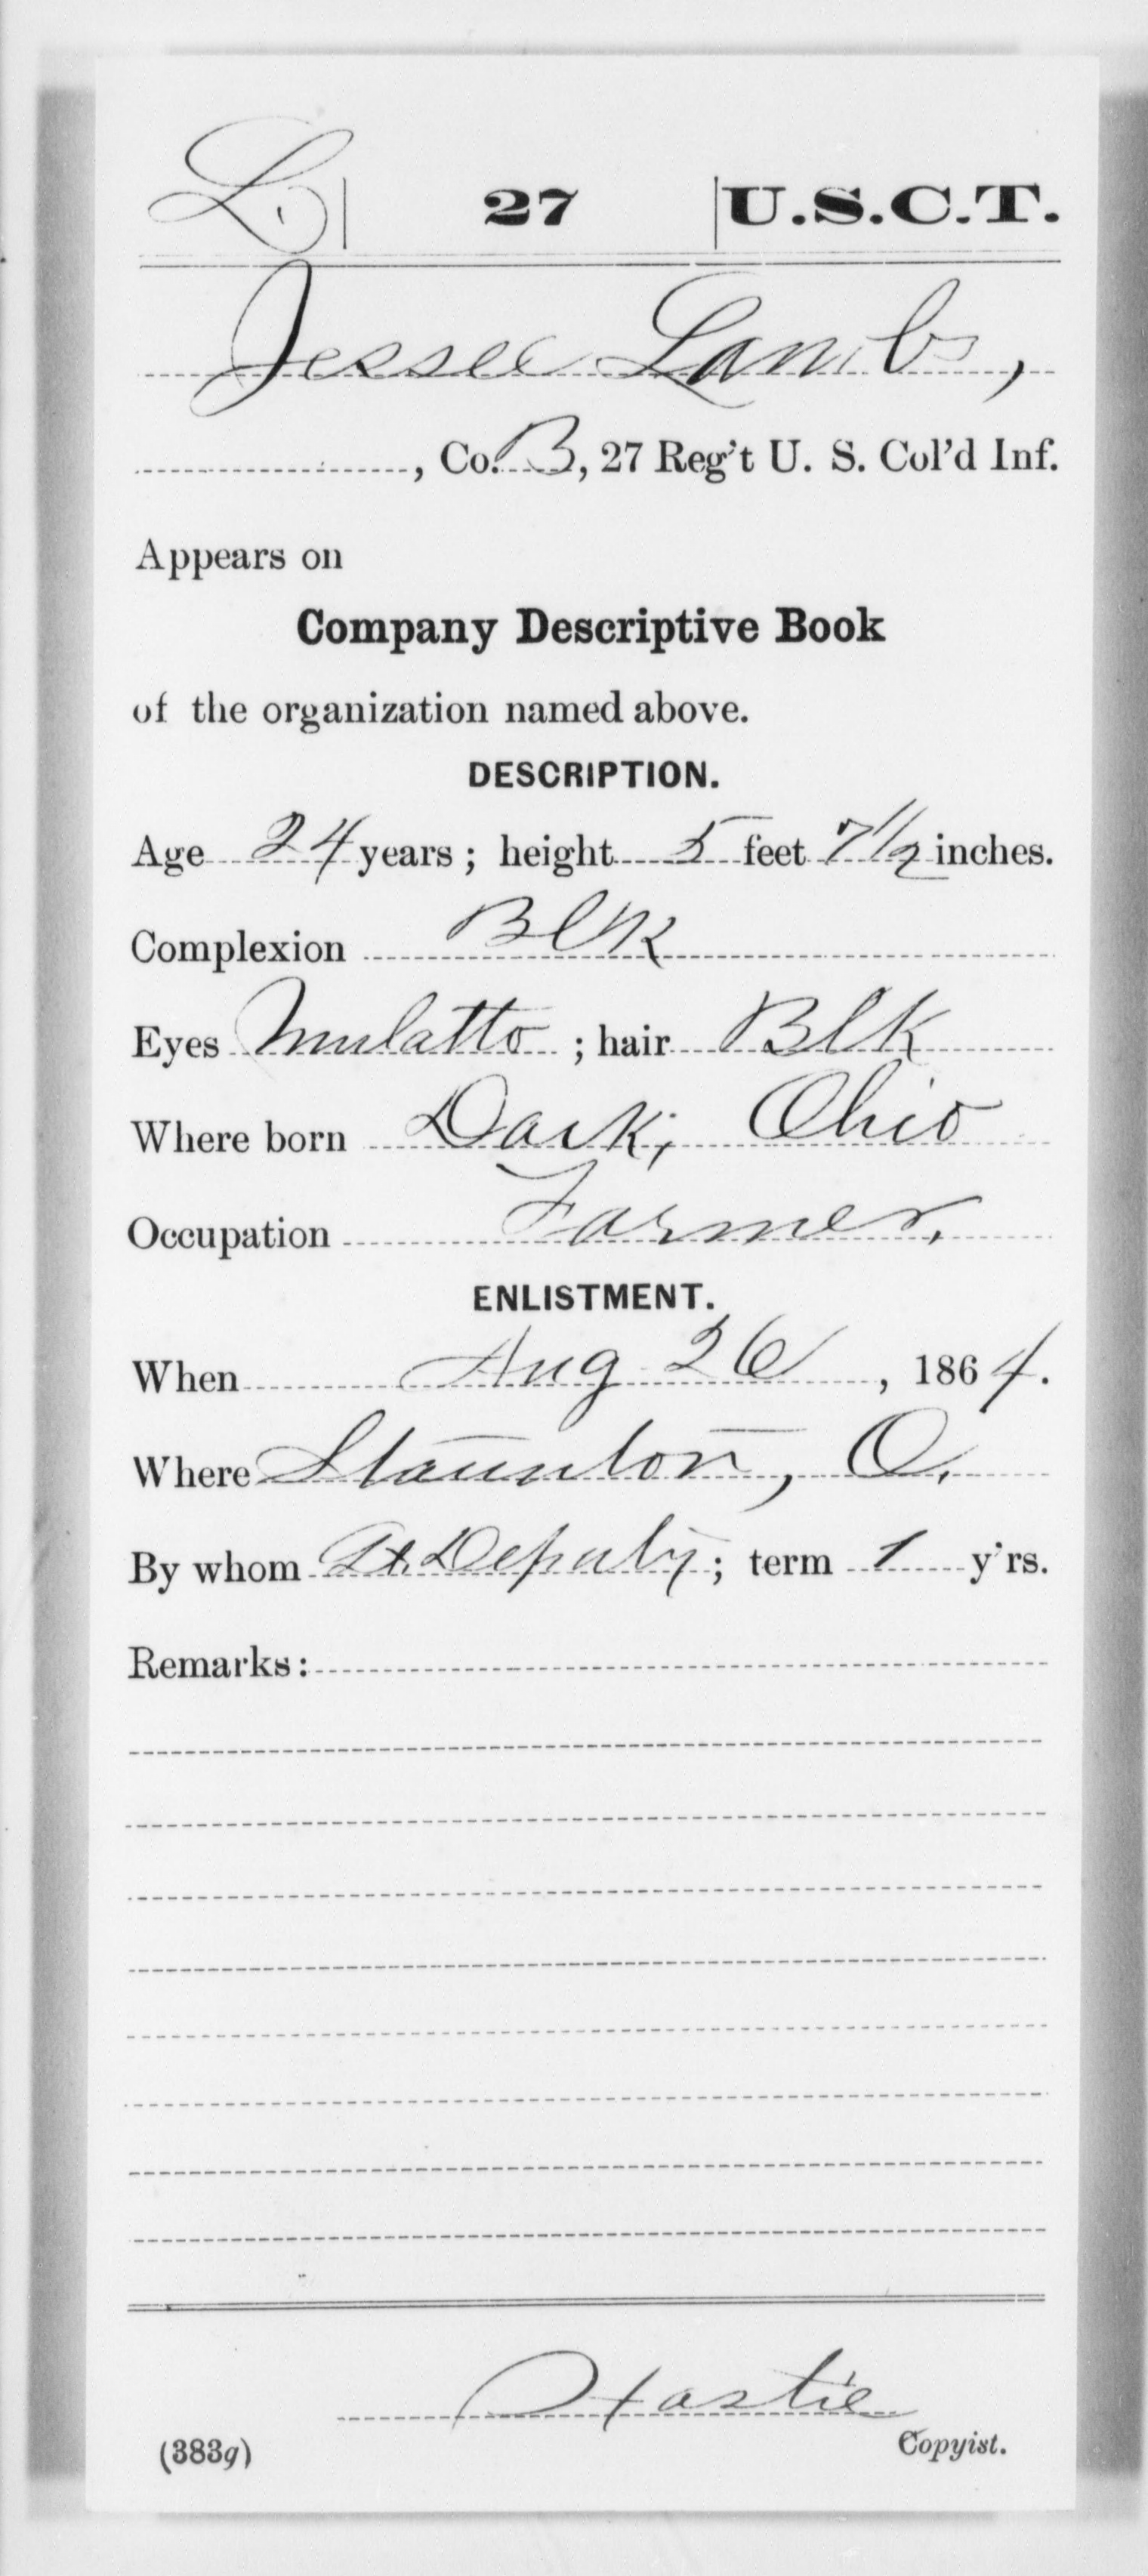 L | 27 | U.S.C.T.
Jesse Lamb,
, Co. B, 27 Reg't U. S. Col'd Inf.
Appears on
Company Descriptive Book
of the organization named above.
DESCRIPTION.
Age 24 years; height 5 feet 7 1/2 inches.
Complexion Blk
Eyes Mulatto; hair Blk
Where born Dark, Ohio
Occupation Farmer,
ENLISTMENT.
When Aug 26, 1864.
Where Staunton, O.
By whom Deputy; term 1 y'rs.
Remarks:
Hastie
(383g) Copyist.